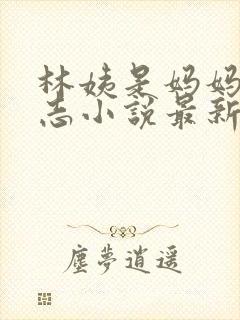 林姨是妈妈
志小说最新
塵夢逍遥